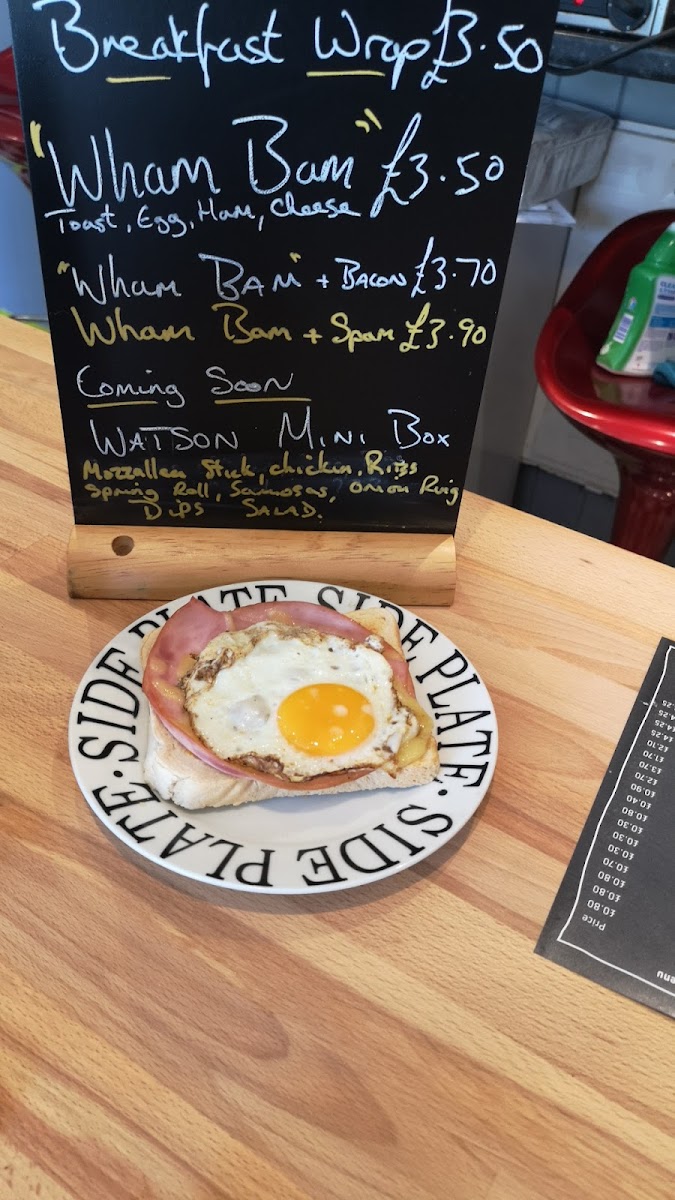 Breakfast Wrap £3.50
"Wham Bam" £3.50
Toast, Egg, Ham, Cheese
"Wham BAM" + BACON £3.70
Wham Bam + Spam £3.90
Coming Soon
WATSON MINI BOX
Mozzallea Stick, chicken, Ribs
Spring Roll, Samosas, Onion Ring
DIPS SALAD.
SIDE PLATE · SIDE PLATE · SIDE PLATE · SIDE PLATE
enu
Price
£0.80
£0.80
£0.70
£0.30
£0.30
£0.80
£0.40
£0.90
£2.70
£3.70
£1.70
£2.10
£4.25
£4.25